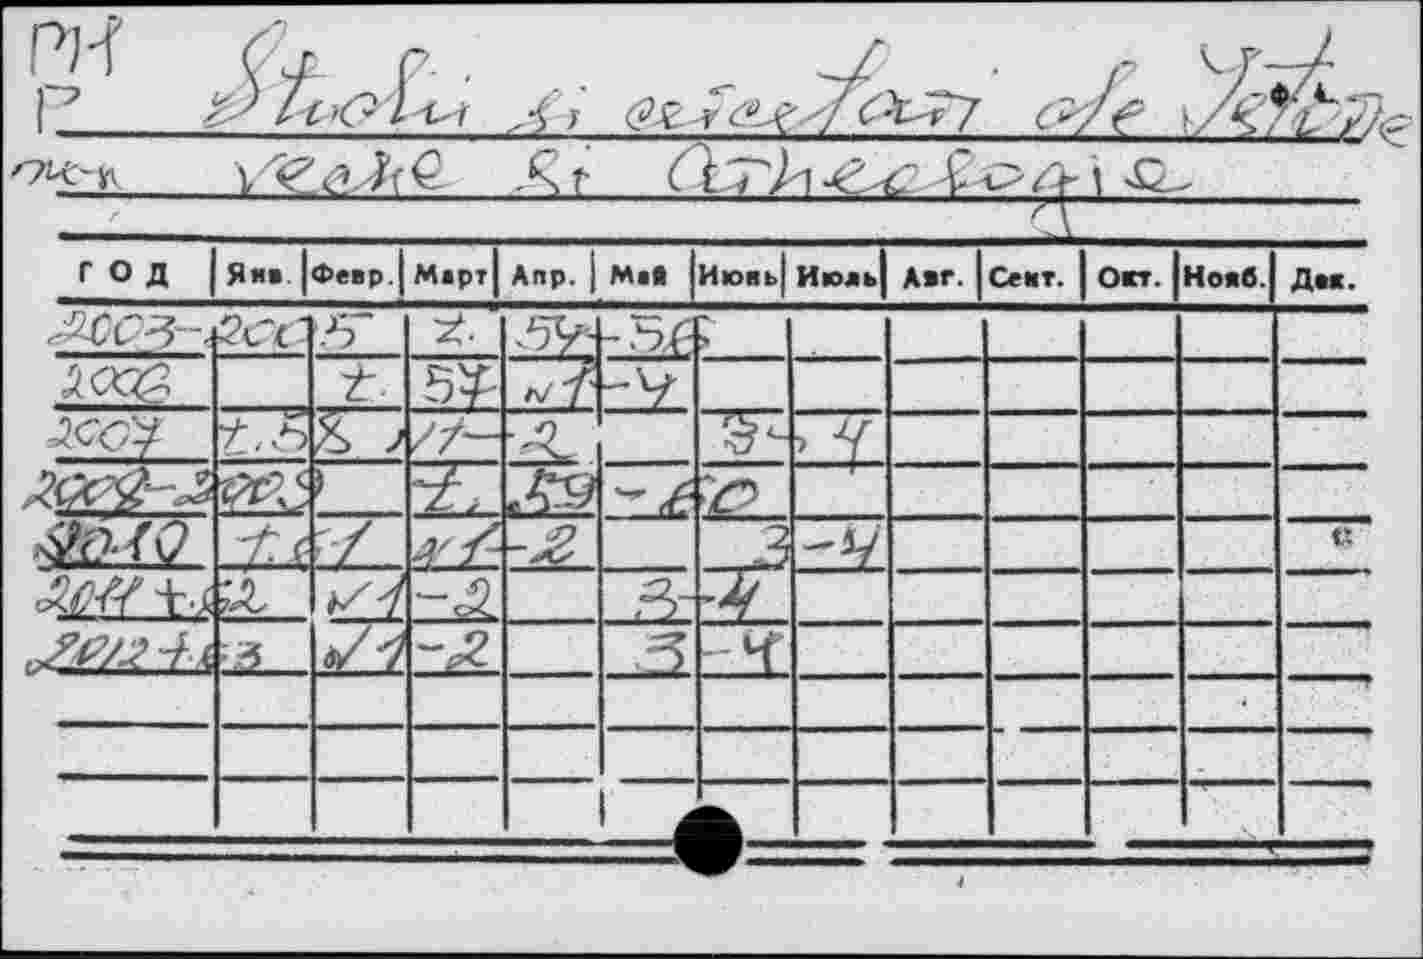 РЖ
Р Studii si cercetari de Istorie
veche si arheologie
ГОД Янв. Февр. Март Апр. Май Июнь Июль Авг. Сент. Окт. Нояб. Дек.
2003-2005 t. 54-56
2006 t. 57 N1-4
2007 t. 58 N1-2 3-4
2008-2009 t. 59-60
2010 t. 61 N1-2 3-4
2011 t. 62 N1-2 3-4
2012 t. 63 N1-2 3-4